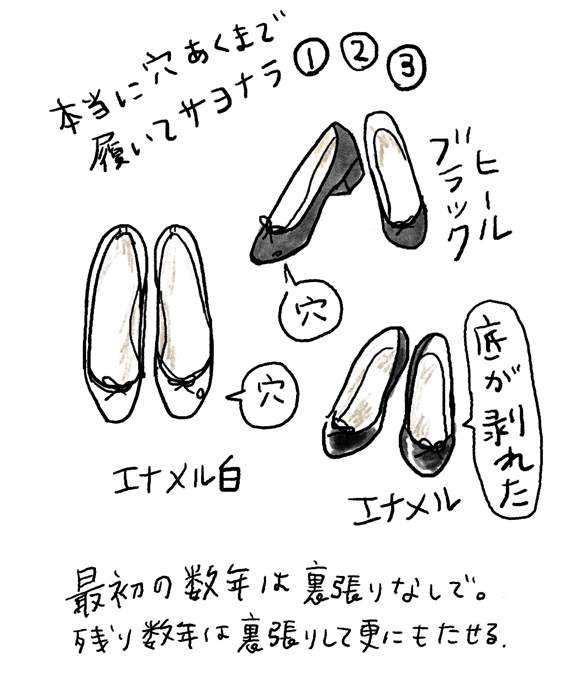 本当に穴あくまで
履いてサヨナラ①②③
ヒール
ブラック
穴
穴
底が剥れた
エナメル白
エナメル
最初の数年は裏張りなしで。
残り数年は裏張りして更にもたせる.